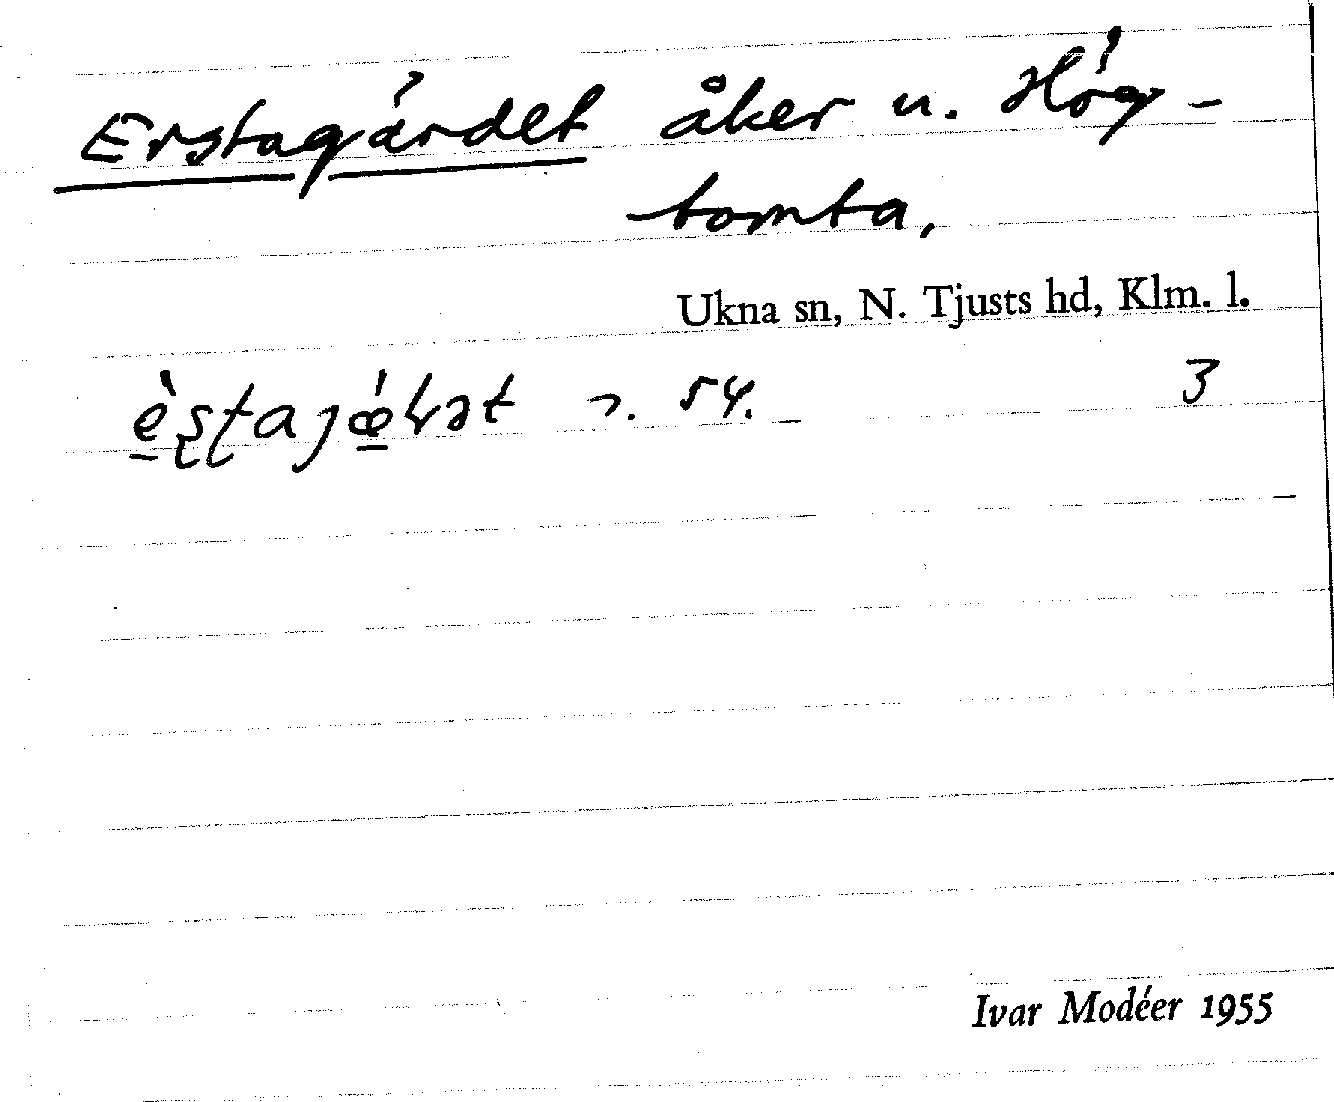 Erstagärdet åker u. Hög-
tomta,
Ukna sn, N. Tjusts hd, Klm. l.
54. 3
Ivar Modéer 1955